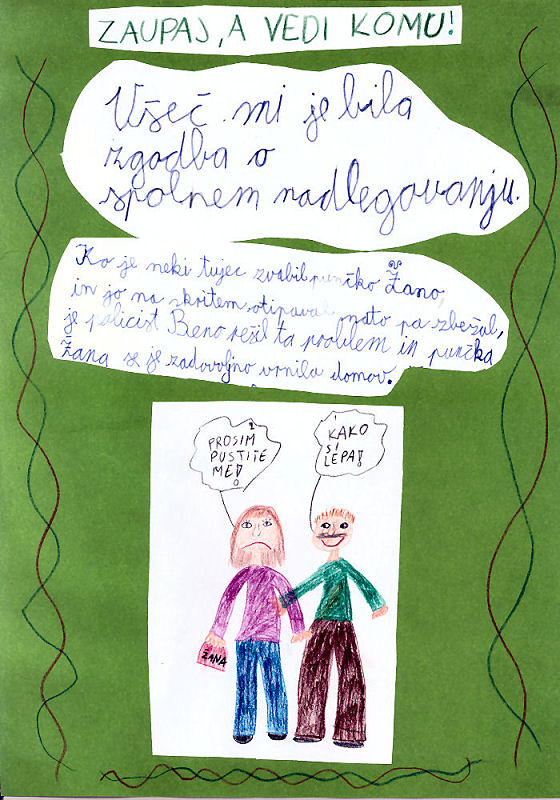 ZAUPAJ, A VEDI KOMU!
Všeč mi je bila
zgodba o
spolnem nadlegovanju.
Ko je neki tujec zvabil punčko Žano,
in jo na skritem otipaval nato pa zbežal,
je policist Beno rešil ta problem in punčka
Žana se je zadovoljno vrnila domov.
PROSIM
PUSTITE
ME!
KAKO
SI
LEPA!
ŽANA